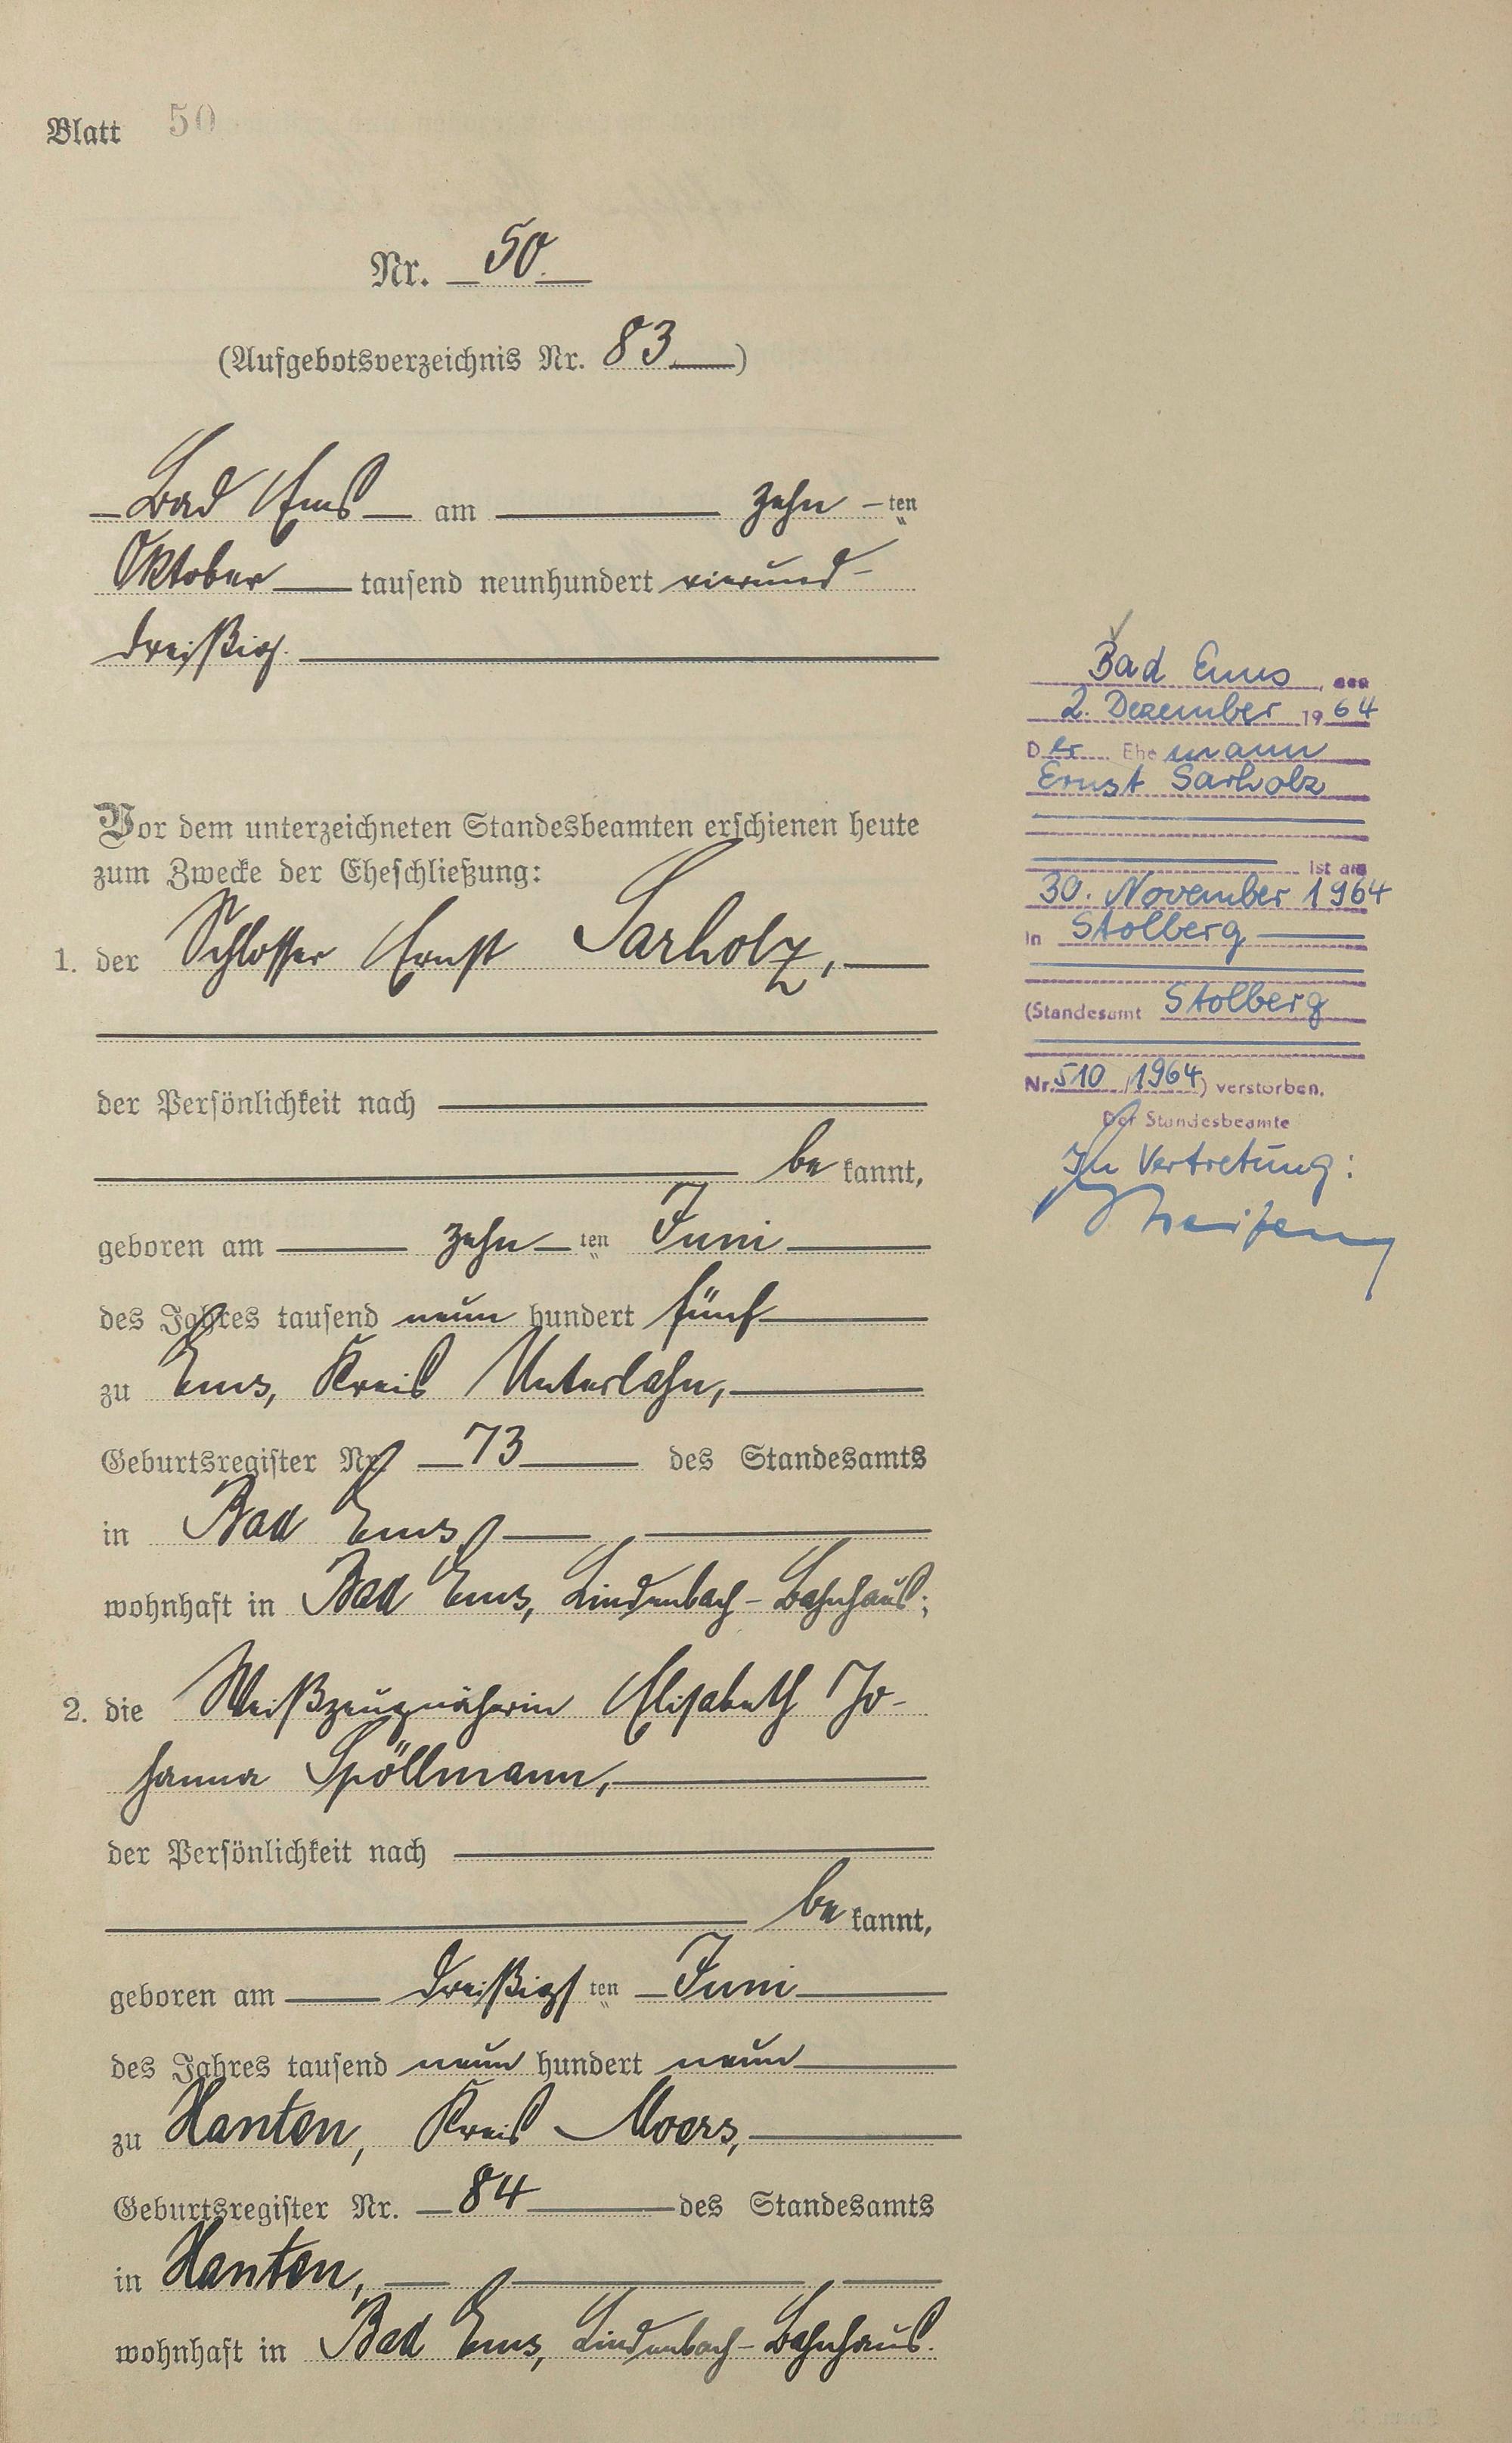 Blatt 50
Nr. 50.
(Aufgebotsverzeichnis Nr. 83)
Bad Ems am zehn ten
Oktober tausend neunhundert vierund-
dreißig.
Vor dem unterzeichneten Standesbeamten erschienen heute
zum Zwecke der Eheschließung:
1. der Schlosser Ernst Sarholz,
der Persönlichkeit nach
be kannt,
geboren am zehn ten Juni
des Jahres tausend neun hundert fünf
zu Ems, Kreis Unterlahn,
Geburtsregister Nr. 73 des Standesamts
in Bad Ems,
wohnhaft in Bad Ems, Lindenbach-Bahnhaus;
2. die Weißzeugnäherin Elisabeth Jo-
hanna Spöllmann,
der Persönlichkeit nach
be kannt,
geboren am dreißigs ten Juni
des Jahres tausend neun hundert neun
zu Xanten, Kreis Moers,
Geburtsregister Nr. 84 des Standesamts
in Xanten,
wohnhaft in Bad Ems, Lindenbach-Bahnhaus.
Bad Ems, den
2. Dezember 1964
Der Ehemann
Ernst Sarholz
ist am
30. November 1964
in Stolberg
(Standesamt Stolberg
Nr. 510 / 1964) verstorben.
Der Standesbeamte
In Vertretung: